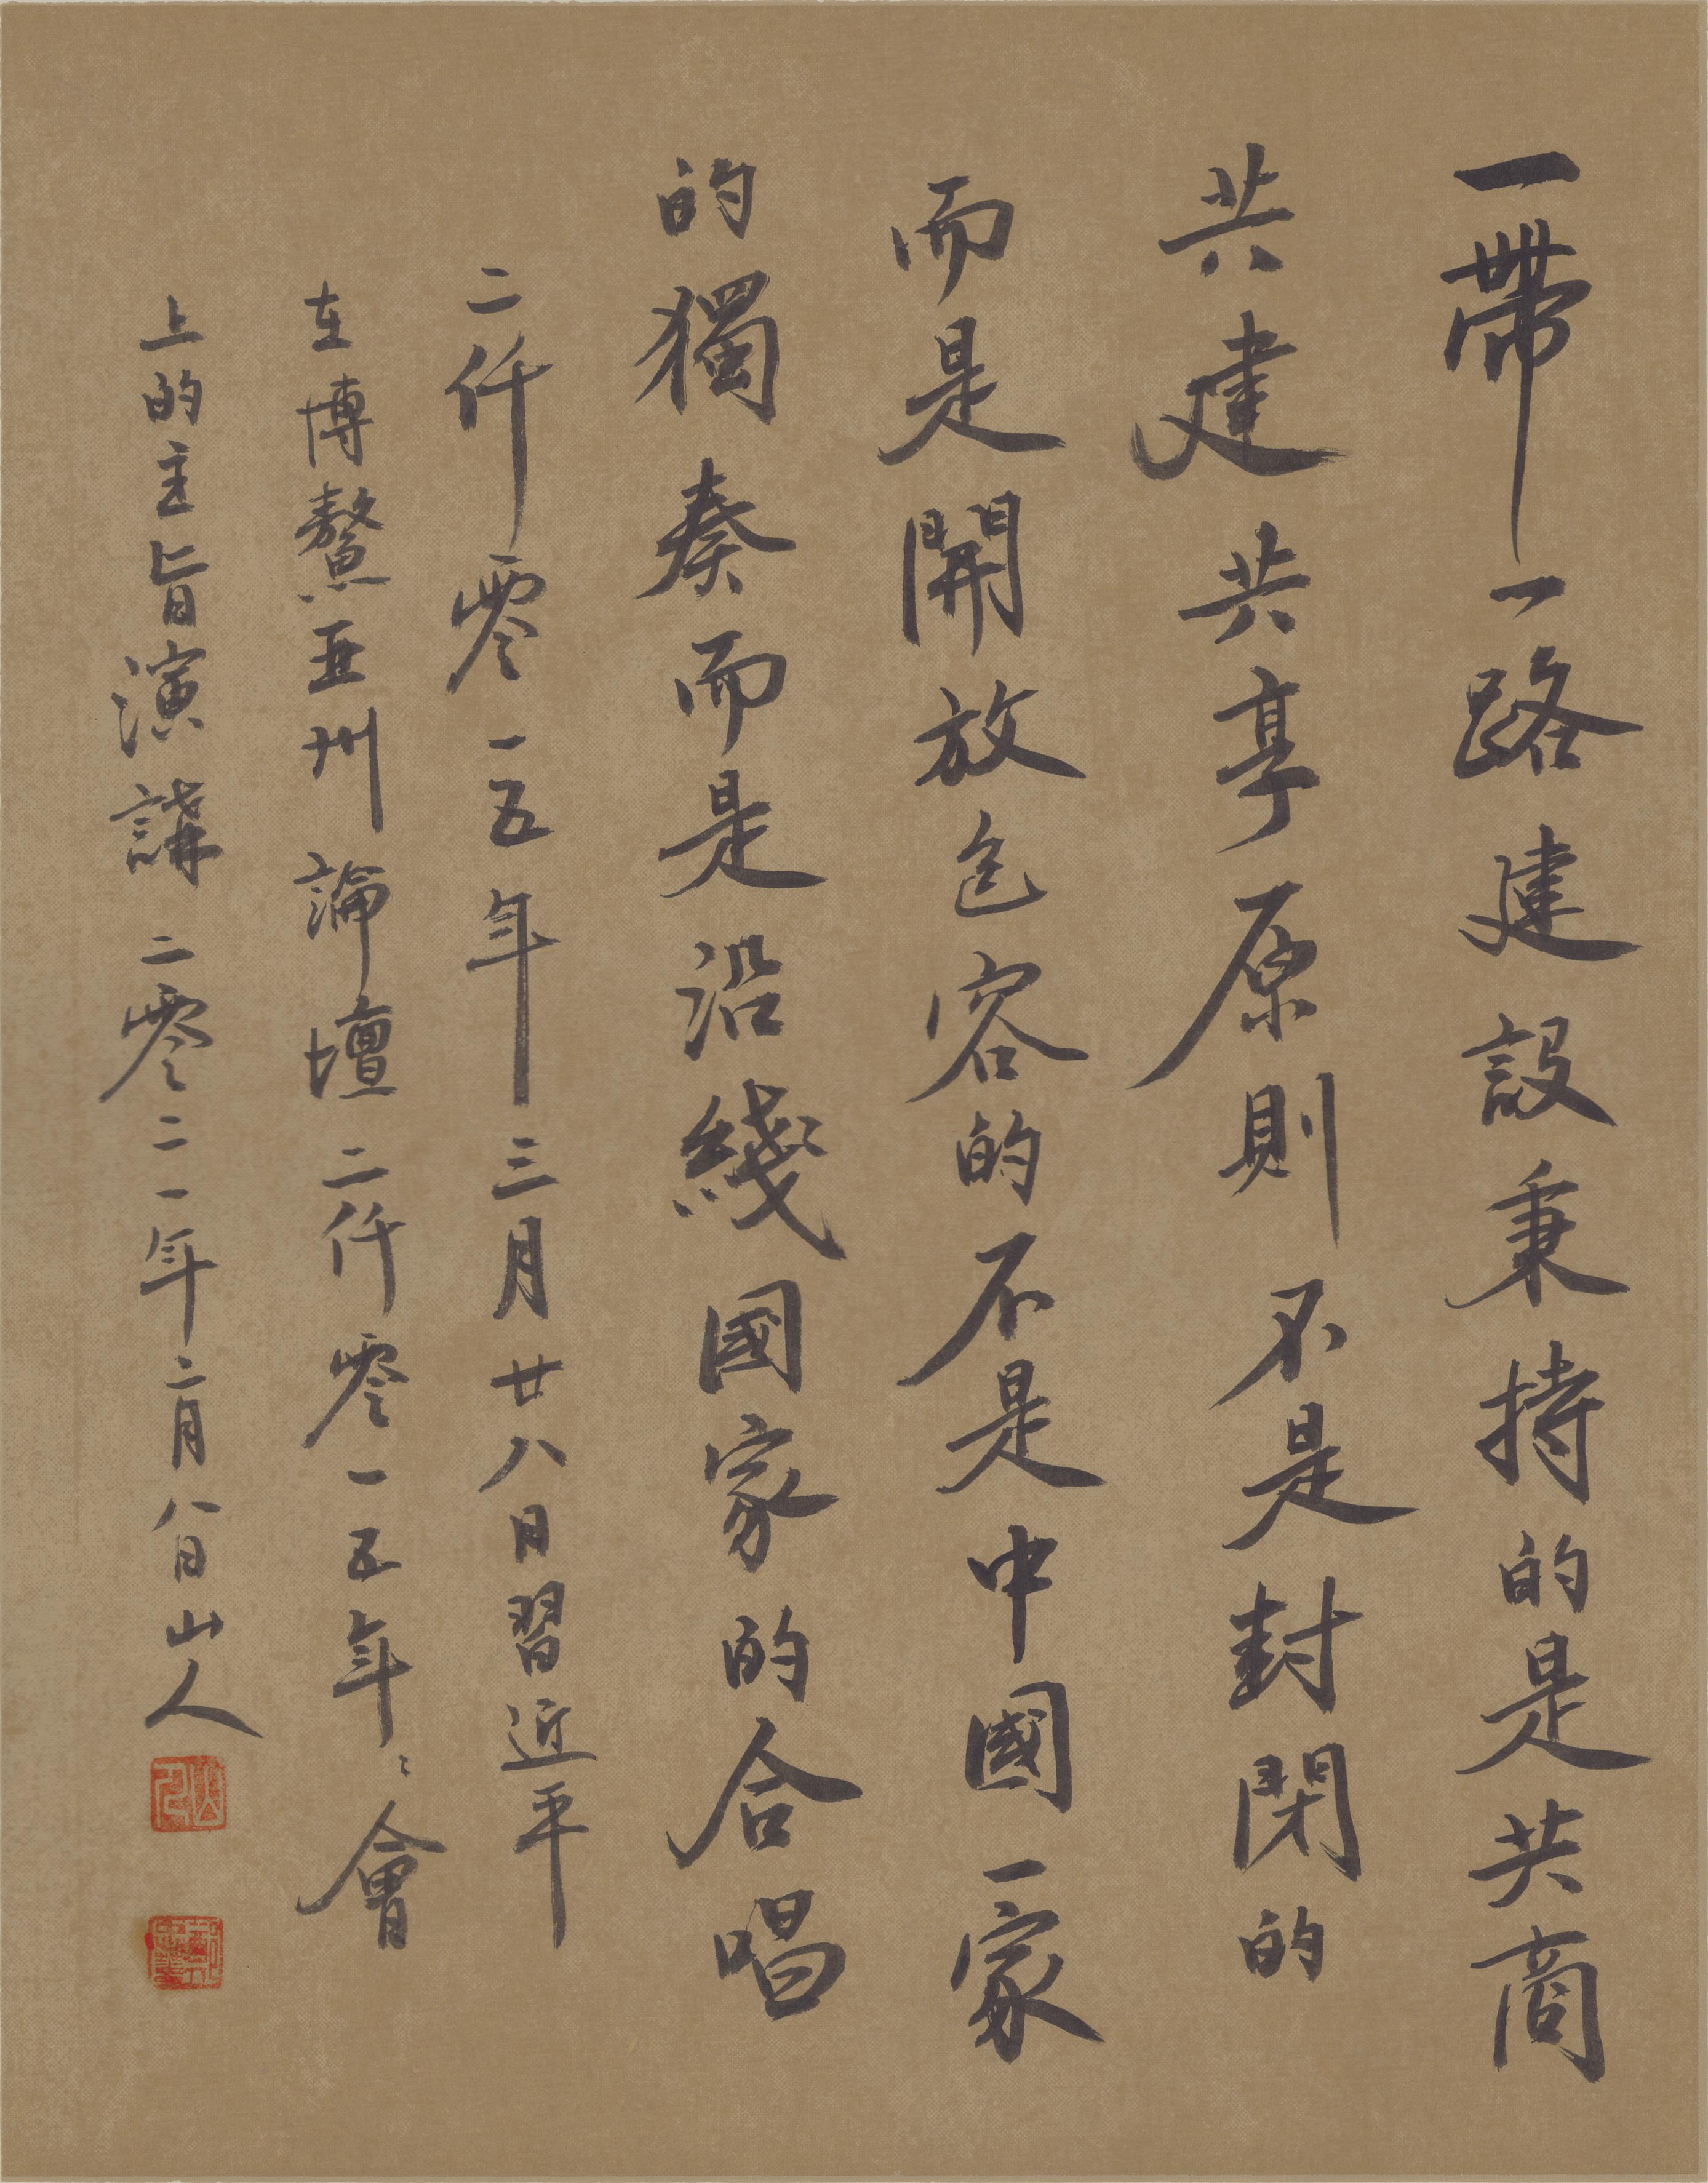 一帶一路建設秉持的是共商
共建共享原則不是封閉的
而是開放包容的不是中國一家
的獨奏而是沿綫國家的合唱
二仟零一五年三月廿八日習近平
在博鰲亞州論壇二仟零一五年年會
上的主旨演講二零二一年二月八日山人